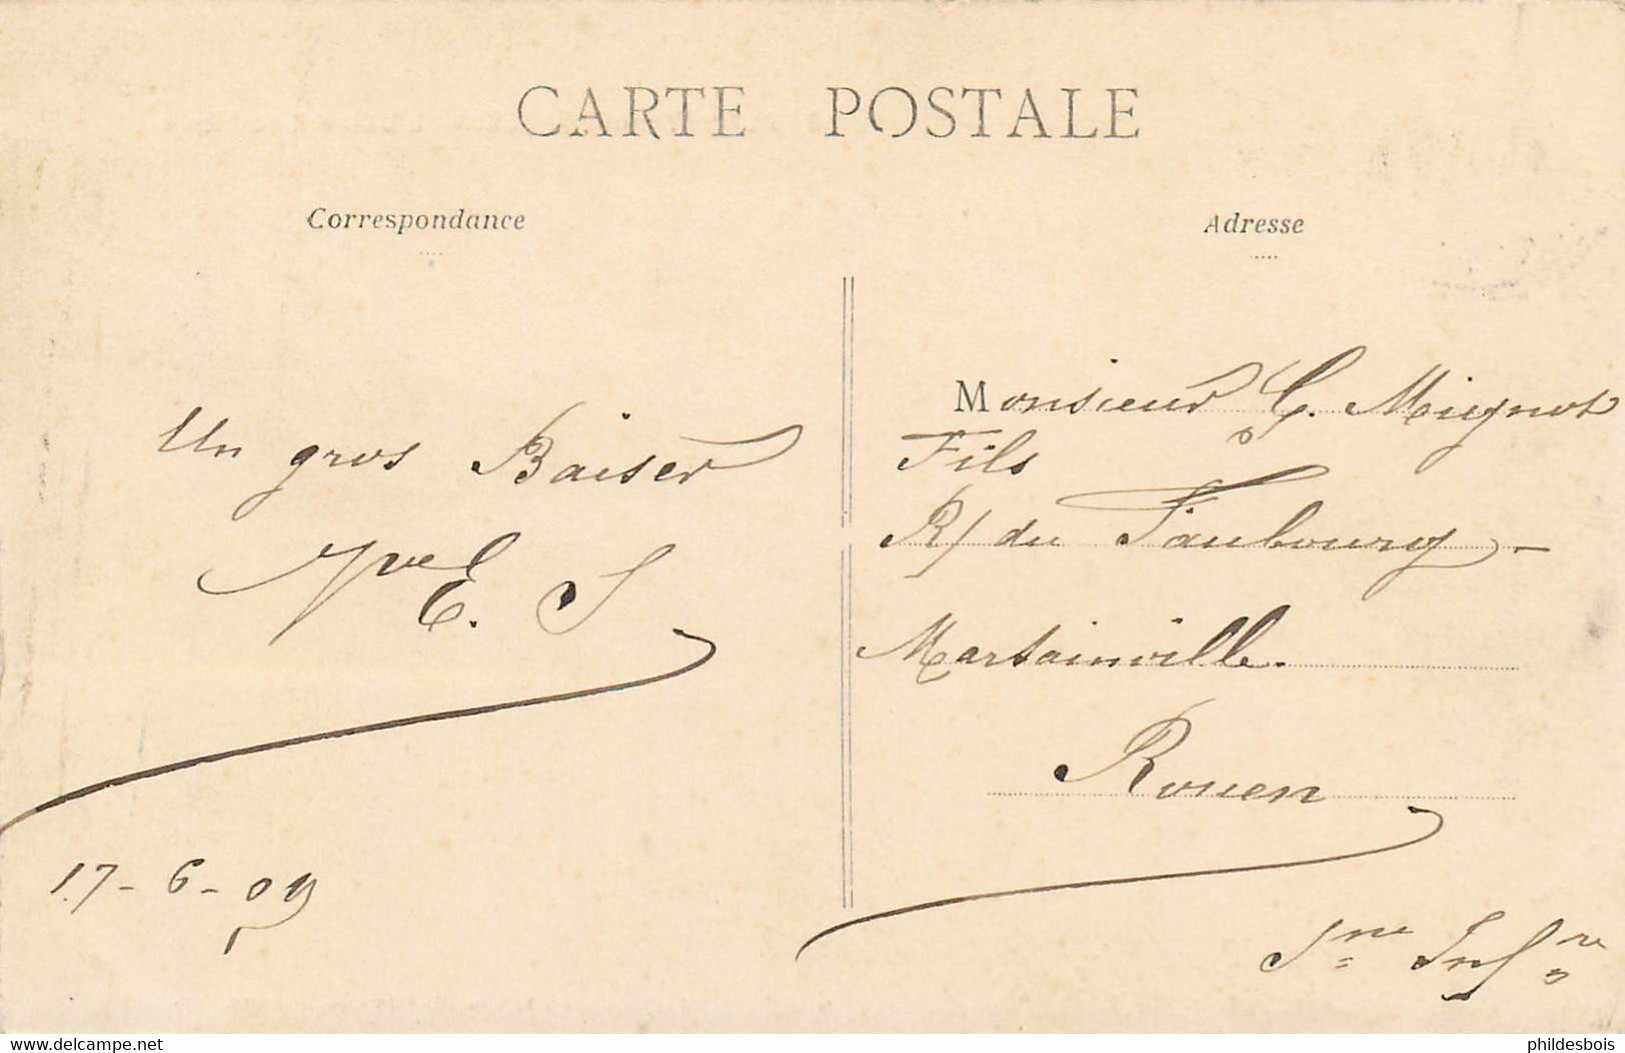 CARTE POSTALE
Correspondance
Adresse
Un gros Baiser
Yve E. S
17-6-09
Monsieur C. Mignot
Fils
R/ du Faubourg-
Martainville.
Rouen
Sne Infre
www.delcampe.net
phildesbois